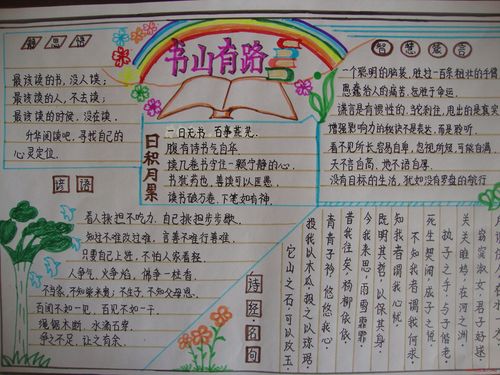 书山有路
最该读的书,没人读;
最该读的人,不去读;
最该读的时候,没去读。
升华阅读吧,寻找自己的
心灵定位。
日积月累
一日无书 百事荒芜.
腹有诗书气自华
读几卷书守住一颗宁静的心.
书犹药也,善读可以医愚.
读书破万卷,下笔如有神.
智慧箴言
一个聪明的脑袋,胜过一百条粗壮的手臂
愚蠢给人的痛苦,在胜于命运.
谎言是有惯性的,当它刹住,甩出的是真实
增强影响力的秘诀不是表达,而是聆听.
看不见所长,容易自卑,忽视所短,可能自满.
天不言自高,地不语自厚.
没有目标的生活,犹如没有罗盘的航行
谚语
看人挑担不吃力,自己挑担步步歇.
知过不难改过难,言善不难行善难.
只要自己上进,不怕人家看轻
人争气,火争焰,佛争一柱香.
不当家,不知柴米贵;不生子,不知父母恩.
百闻不如一见,百见不如一干.
绳锯木断,水滴石穿.
争之不足,让之有余.
诗经·名句
窈窕淑女,君子好逑.
关关雎鸠,在河之洲
执子之手,与子偕老.
死生契阔,与子成说
不知我者谓我何求
知我者,谓我心忧
既明其哲,以保其身.
今我来思,雨雪霏霏
昔我往矣,杨柳依依
青青子衿,悠悠我心
投我以木瓜,报之以琼琚
它山之石,可以攻玉.